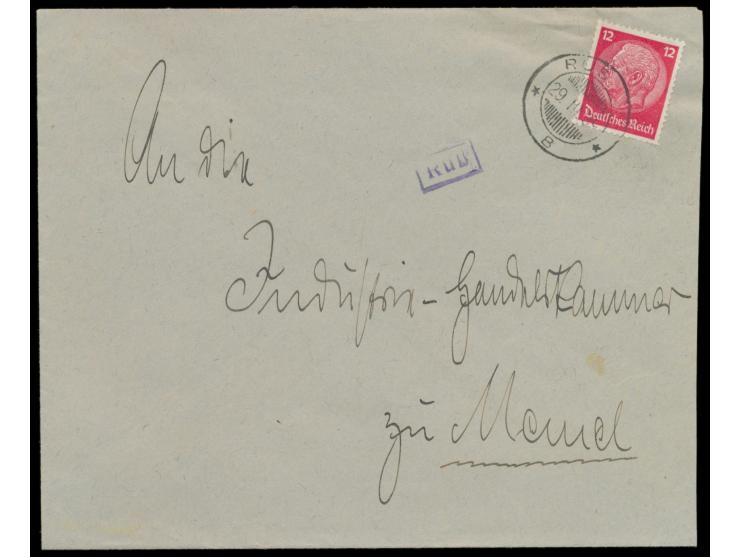 12 12
Deutsches Reich
29.
B
Ruß
An die
Industrie-Handelskammer
zu Memel